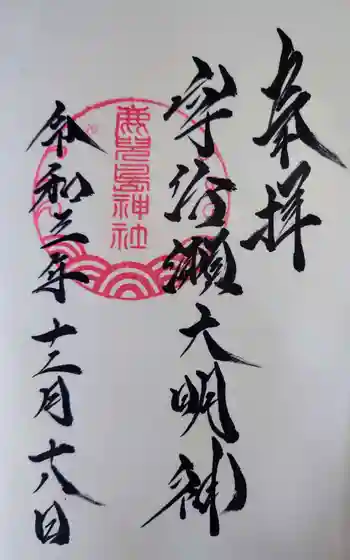 奉拝
宇治瀬大明神
鹿児島神社
令和三年十二月十八日